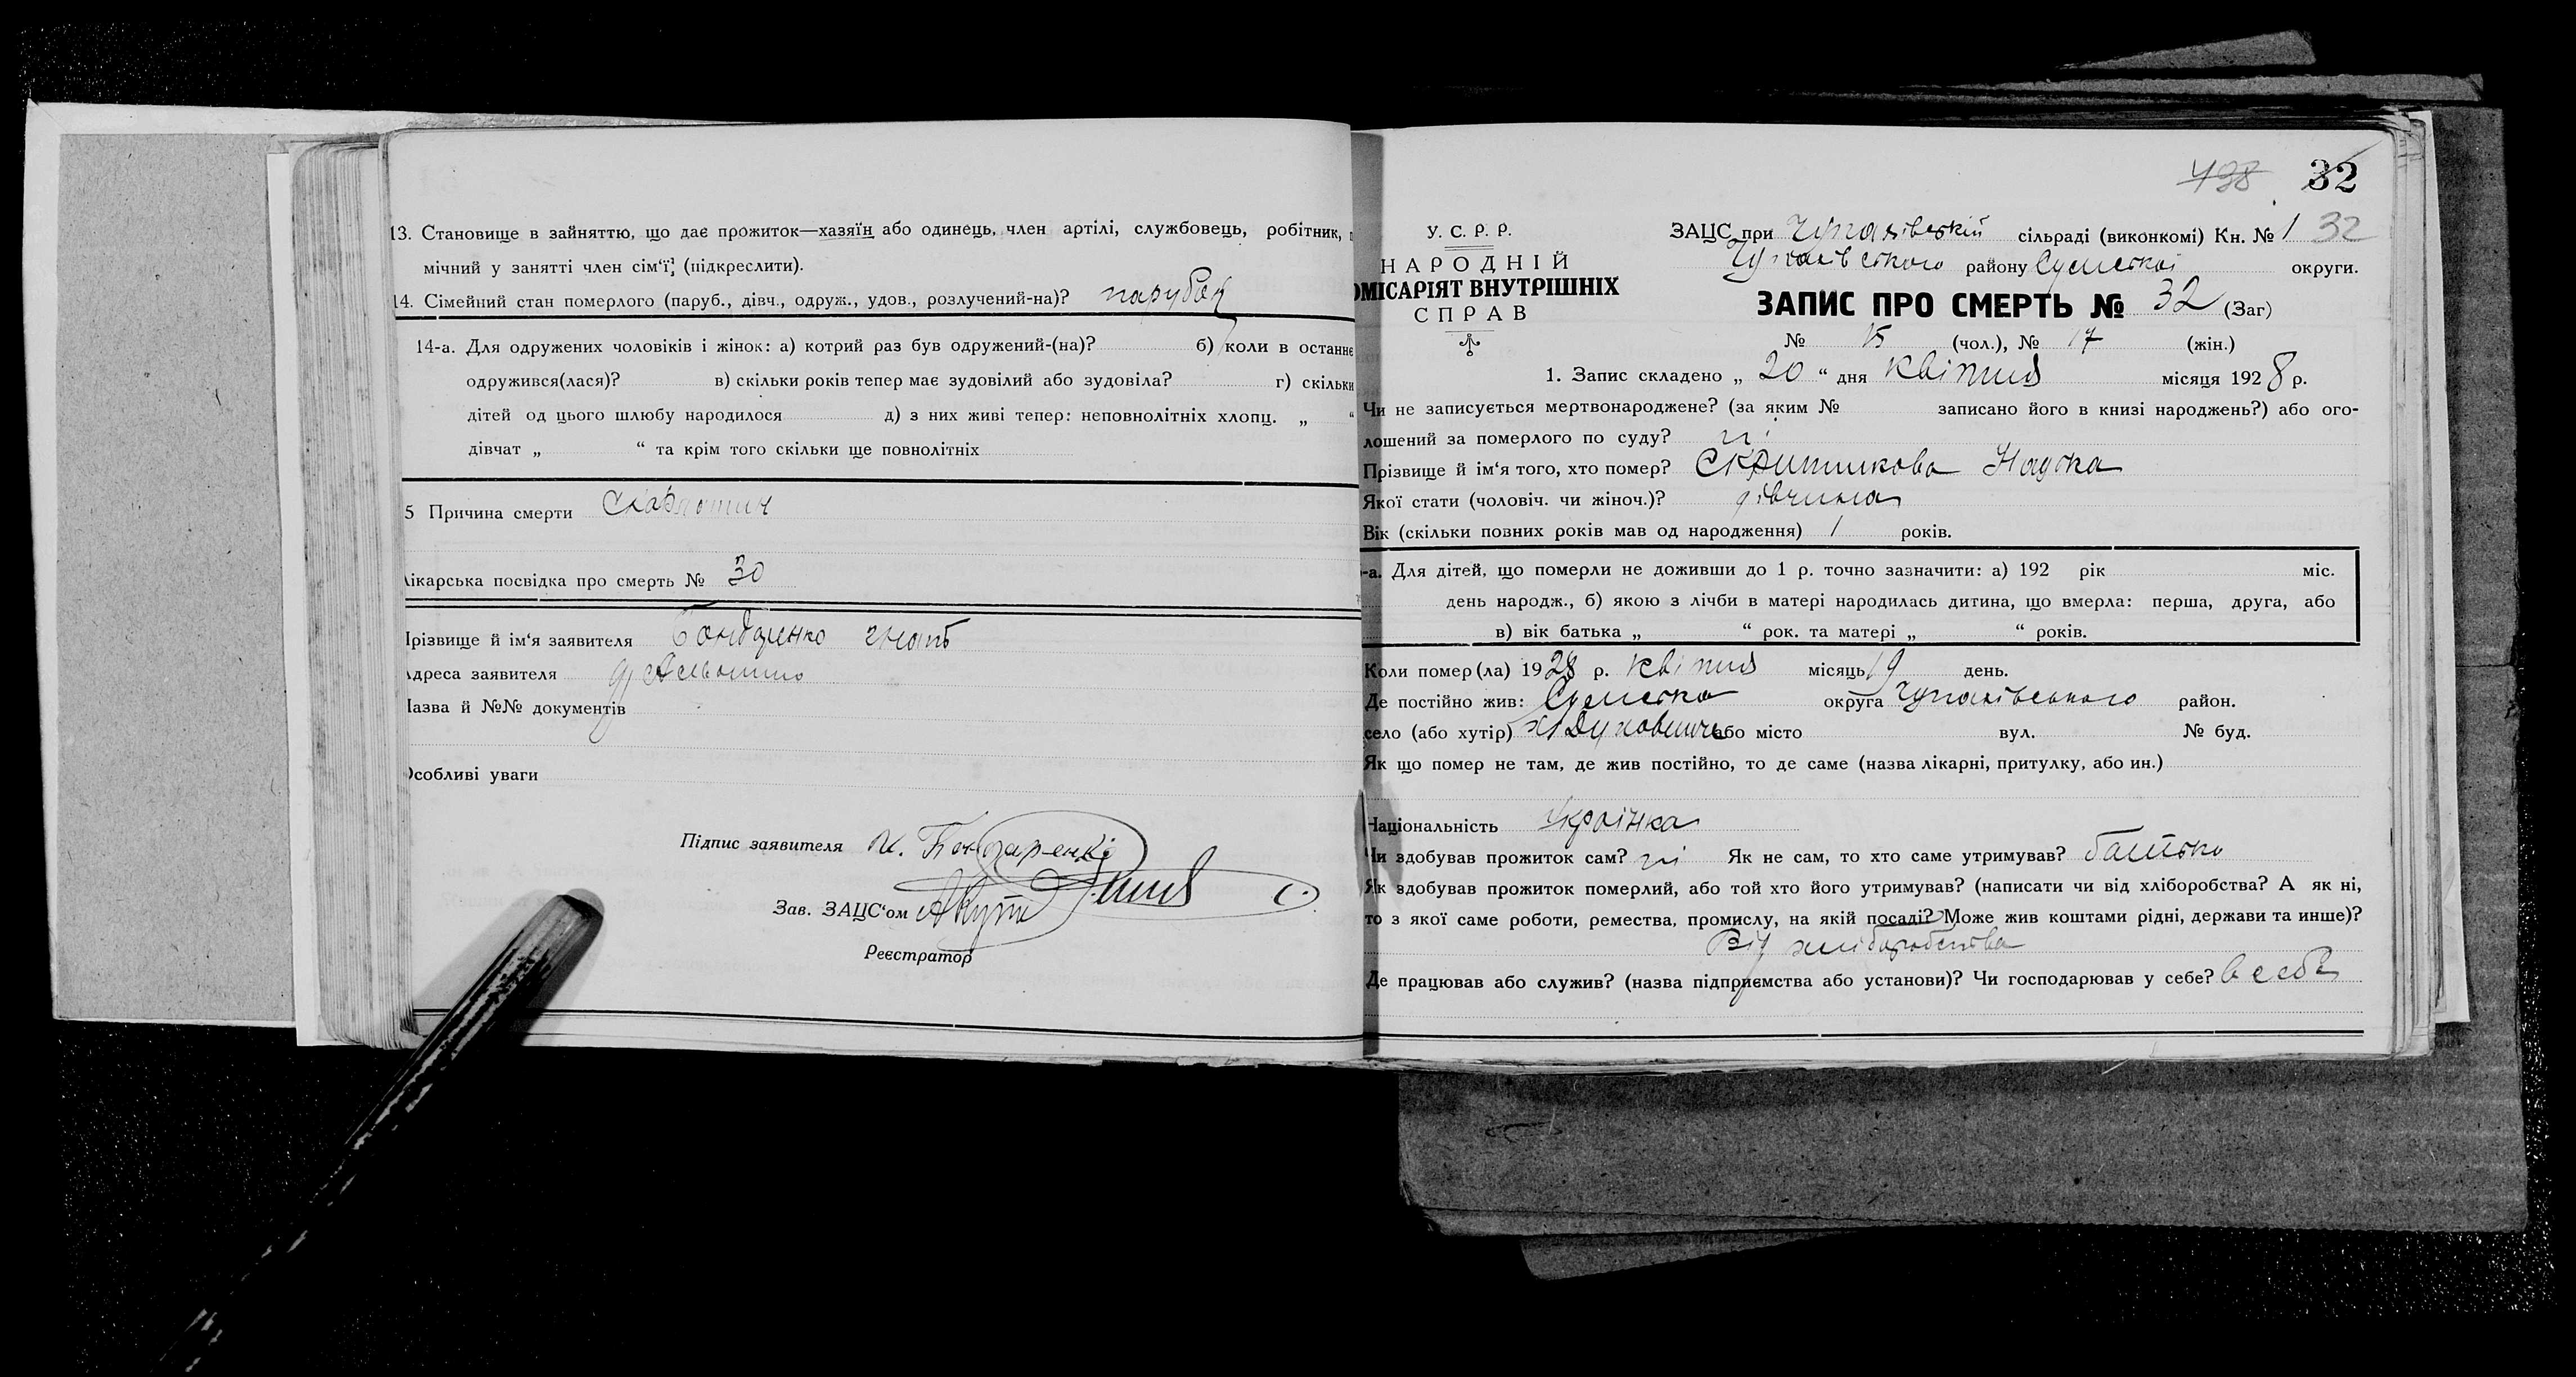 13. Становище в зайняттю, що дає прожиток—хазяїн або одинець, член артілі, службовець, робітник,
мічний у занятті член сім'ї, (підкреслити).
14. Сімейний стан померлого (паруб., дівч., одруж., удов., розлучений-на)? парубок
14-а. Для одружених чоловіків і жінок: а) котрий раз був одружений-(на)? б) коли в останнє
одружився(лася)? в) скільки років тепер має зудовілий або зудовіла? г) скільки
дітей од цього шлюбу народилося д) з них живі тепер: неповнолітніх хлопц. „ “
дівчат „ “ та крім того скільки ще повнолітніх
5 Причина смерти
Лікарська посвідка про смерть № 30
Прізвище й ім'я заявителя Бондаренко Гнат
Адреса заявителя
Назва й №№ документів
Особливі уваги
Підпис заявителя Бондаренко
Зав. ЗАЦС'ом
Реєстратор
438 32
У. С. Р. Р.
НАРОДНІЙ
ОМІСАРІЯТ ВНУТРІШНІХ
СПРАВ
ЗАЦС при Чупахівській сільраді (виконкомі) Кн. № 1 32
Чупахівського району Сумської округи.
ЗАПИС ПРО СМЕРТЬ № 32 (Заг)
№ 15 (чол.), № 17 (жін.)
1. Запис складено „ 20 “ дня квітня місяця 1928 р.
Чи не записується мертвонароджене? (за яким № записано його в книзі народжень?) або ого-
лошений за померлого по суду? ні
Прізвище й ім'я того, хто помер? Скритникова Надка
Якої стати (чоловіч. чи жіноч.)? дівчина
Вік (скільки повних років мав од народження) 1 років.
-а. Для дітей, що померли не доживши до 1 р. точно зазначити: а) 192 рік міс.
день народж., б) якою з лічби в матері народилась дитина, що вмерла: перша, друга, або
в) вік батька „ “ рок. та матері „ “ років.
Коли помер(ла) 1928 р. квітня місяць 19 день.
Де постійно жив: Сумська округа Чупахівського район.
село (або хутір) або місто вул. № буд.
Як що помер не там, де жив постійно, то де саме (назва лікарні, притулку, або ин.)
Національність Українка
Чи здобував прожиток сам? ні Як не сам, то хто саме утримував? батько
Як здобував прожиток померлий, або той хто його утримував? (написати чи від хліборобства? А як ні,
то з якої саме роботи, ремества, промислу, на якій посаді? Може жив коштами рідні, держави та инше)?
Від хліборобства
Де працював або служив? (назва підприємства або установи)? Чи господарював у себе? в себе